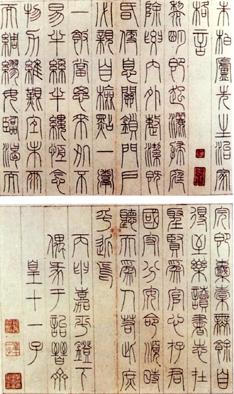 朱柏廬先生治家
格言
黎明即起灑掃庭
除要內外整潔既
昏便息關鎖門戶
必親自檢點一粥
一飯當思來處不
易半絲半縷恆念
物力維艱宜未雨
而綢繆毋臨渴而
完即囊橐無餘自
得至樂讀書志在
聖賢為官心存君
國守分安命順時
聽天為人若此庶
乎近焉
丙嘉平鐙下
偶于詒晉齋
皇十一子